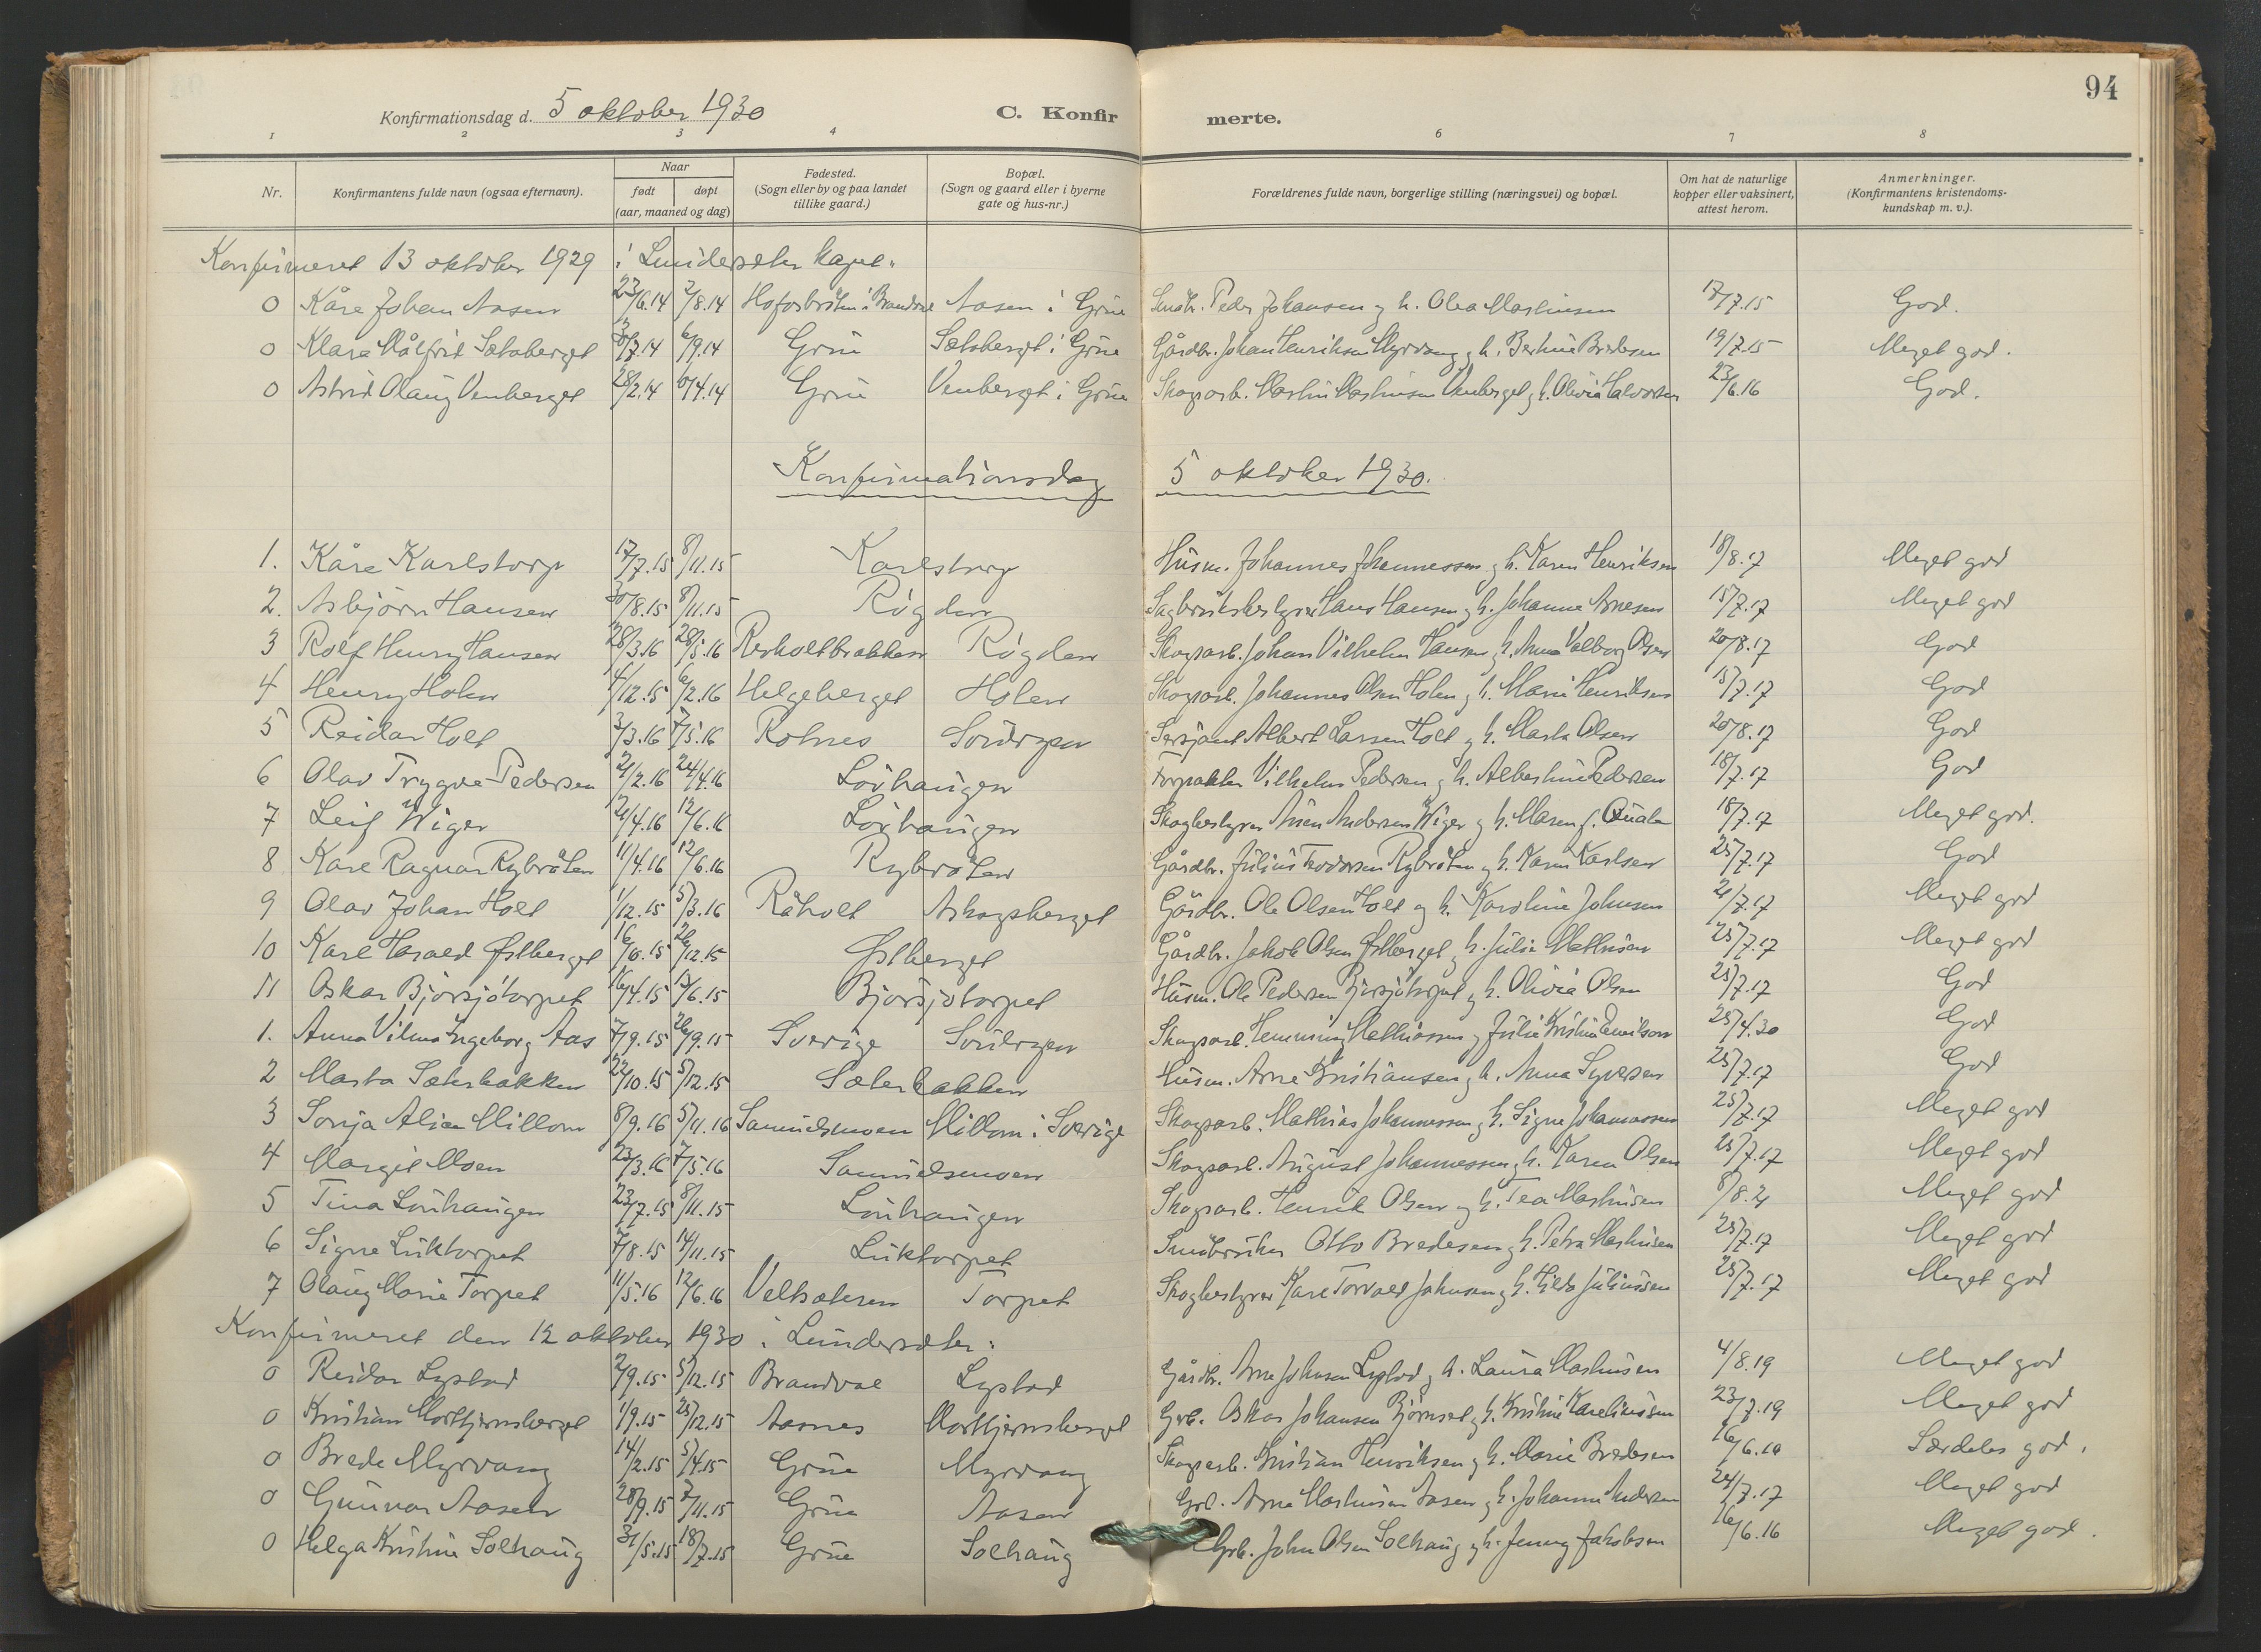 94
Konfirmationsdag d. 5 oktober 1930 C. Konfir merte.
1 2 3 4 6 7 8
Nr. Konfirmantens fulde navn (ogsaa efternavn). Naar født døpt (aar, maaned og dag) Fødested. (Sogn eller by og paa landet tillike gaard.) Bopæl. (Sogn og gaard eller i byerne gate og hus-nr.) Forældrenes fulde navn, borgerlige stilling (næringsvei) og bopæl. Om hat de naturlige kopper eller vaksinert, attest herom. Anmerkninger. (Konfirmantens kristendoms-kundskap m. v.).
Konfirmeret 13 oktober 1929 i Lundersæter kapel.
0 Kåre Johan Aasen 23/6.14 2/8.14 Hoforbråten i Brandval Aasen i Grue Småbr. Peder Johansen og h. Olea Martinsen 17/7.15 God.
0 Klara Målfrid Sætaberget 30/7.14 6/9.14 Grue Sætaberget i Grue Gårdbr. Johan Henriksen Myrvang og h. Bertine Bredesen 19/7.15 Meget god.
0 Astrid Olaug Venberget 28/2.14 /4.14 Grue Venberget i Grue Skogsarb. Martin Martinsen Venberget og h. Olivia Halvorsen 23/6.16 God.
Konfirmationsdag 5 oktober 1930.
1. Kåre Karlstorp 17/7.15 8/11.15 Karlstorp Husm. Johannes Johannessen og h. Karen Henriksen 18/8.17 Meget god
2. Asbjørn Hansen 30/8.15 8/11.15 Røgden Sagbruksbestyrer Hans Hansen og h. Johanne Arnesen 15/7.17 Meget god
3 Rolf Henry Hansen 28/3.16 28/5.16 Rerholtbrakken Røgden Skogsarb. Johan Vilhelm Hansen og h. Anna Valborg Olsen 20/8.17 God
4 Henry Holen 4/12.15 6/2.16 Helgeberget Holen Skogsarb. Johannes Olsen Holen og h. Marie Henriksen 15/7.17 God
5 Reidar Holt 3/3.16 7/5.16 Rotnes Sorkopen Sersjant Albert Larsen Holt og h. Marta Olsen 20/8.17 God
6 Olav Trygve Pedersen 21/2.16 24/4.16 Løvhaugen Forpakter Vilhelm Pedersen og h. Albertine Pedersen 18/7.17 God
7 Leif Wiger 21/4.16 12/6.16 Løvhaugen Skogbestyrer Anen Andersen Wiger og h. Maren f. Quale 18/7.17 Meget god.
8 Kåre Ragnar Rybråten 11/4.16 12/6.16 Rybråten Gårdbr. Julius Teodorsen Rybråten og h. Karen Karlsen 25/7.17 God
9 Olav Johan Holt 1/12.15 5/3.16 Råholt Askogsberget Gårdbr. Ole Olsen Holt og h. Karoline Johnsen 21/7.17 Meget god
10 Karl Harald Østberget 16/10.15 26/12.15 Østberget Gårdbr. Jakob Olsen Østberget og h. Julie Mathisen 25/7.17 Meget god
11 Oskar Bjørsjøtorpet 16/4.15 13/6.15 Bjørsjøtorpet Husm. Ole Pedersen Bjørsjøtorpet og h. Olivia Olsen 25/7.17 God
1. Anna Vilma Ingeborg Aas 7/9.15 26/9.15 Sverige Skogsarb. Henning Mathiassen og Julie Kristine Henrikson 25/4.30 God
2 Marta Sæterbakken 22/10.15 5/12.15 Sæterbakken Husm. Arne Kristiansen og h. Anna Syversen 25/7.17 God
3 Sonja Alice Millom 8/9.16 5/11.16 Samuelsmoen Millom i Sverige Skogsarb. Mathias Johannessen og h. Signe Johannessen 25/7.17 Meget god
4 Margit Moen 23/3.16 7/5.16 Samuelsmoen Skogsarb. August Johannessen og h. Karen Olsen 25/7.17 Meget god
5 Tina Løvhaugen 23/7.15 8/11.15 Løvhaugen Skogsarb. Henrik Olsen og h. Tea Martinsen 8/8.21 Meget god
6 Signe Luktorpet 7/8.15 14/11.15 Luktorpet Småbruker Otto Bredesen og h. Petra Martinsen 25/7.17 Meget god
7 Olaug Marie Torpet 11/5.16 12/6.16 Veltsæteren Torpet Skogbestyrer Karl Torvald Johnsen og h. Hilda Juliussen 25/7.17 Meget god
Konfirmeret den 12 oktober 1930 i Lundersæter:
0 Reidar Lystad 2/9.15 5/12.15 Brandval Lystad Gårdbr. Arne Johnsen Lystad og h. Laura Martinsen 4/8.19 Meget god
0 Kristian Morttjernsberget 1/9.15 25/12.15 Aasnes Morttjernsberget Grb. Oskar Johansen Bjørnset og h. Kristine Kareliussen 23/7.19 Meget god
0 Brede Myrvang 14/2.15 5/4.15 Grue Myrvang Skogsarb. Kristian Henriksen og h. Marie Bredesen 16/6. Særdeles god.
0 Gunnar Aasen 28/9.15 7/11.15 Grue Aasen Grb. Arne Martinsen Aasen og h. Johanne Andersen 24/7.17 Meget god
0 Helga Kristine Solhaug 31/5.15 18/7.15 Grue Solhaug Grb. John Olsen Solhaug og h. Jenny Jakobsen 16/6.16 Meget god.